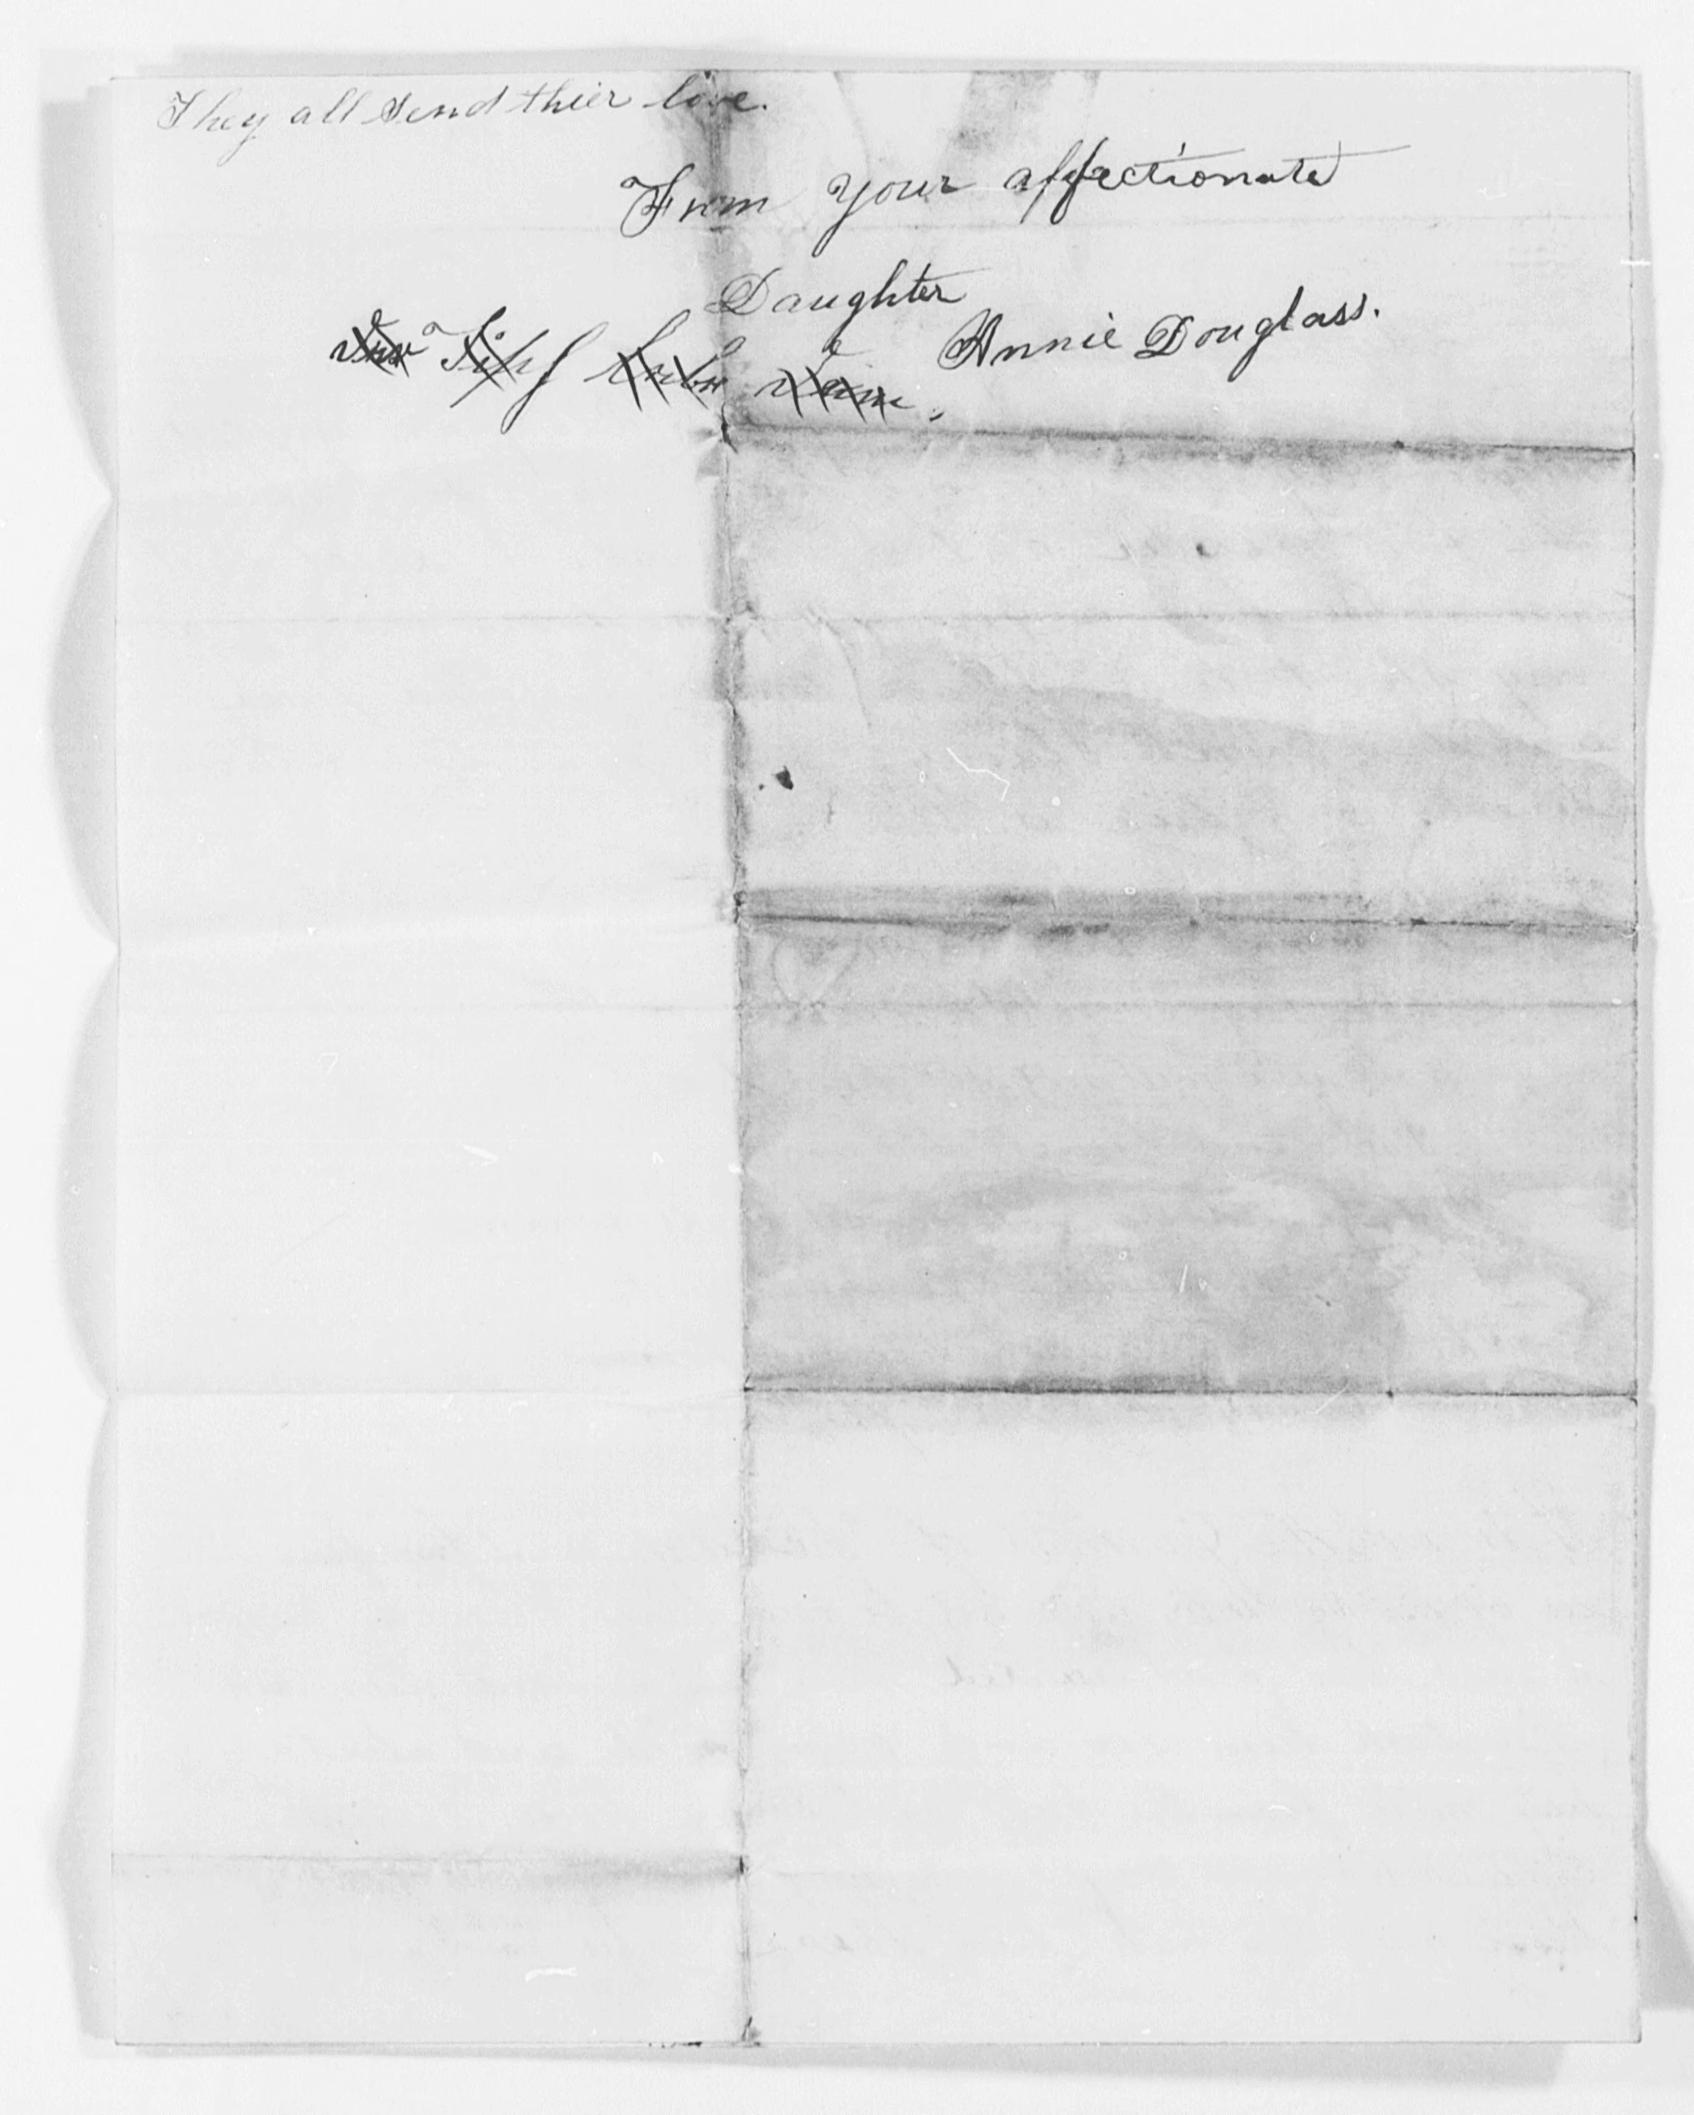 They all send thier love.
From your affectionate
Daughter
Annie Douglass.